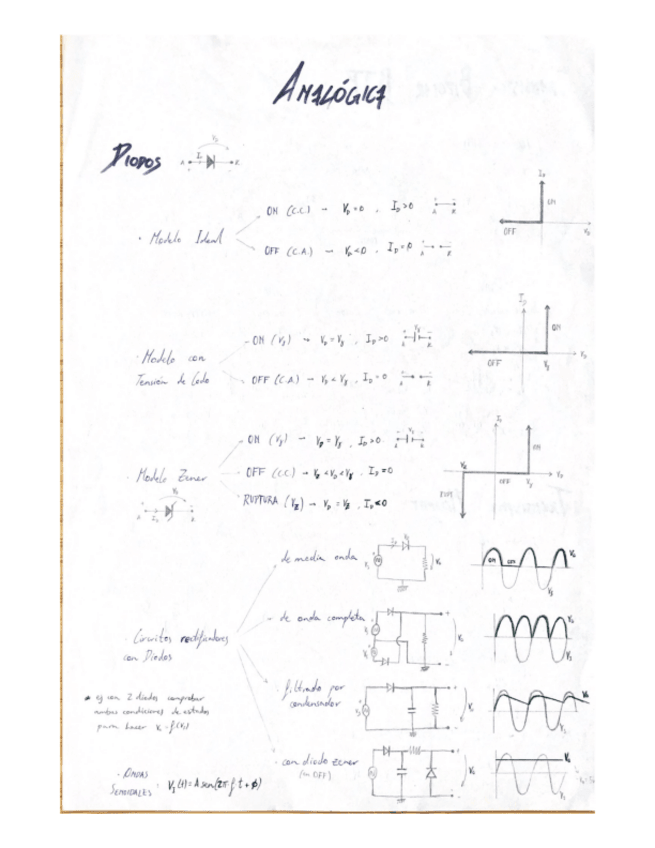 ANALÓGICA
DIODOS
· Modelo Ideal
ON (C.C.) → V_D = 0 , I_D > 0
OFF (C.A.) → V_D < 0 , I_D = 0
ON
OFF
· Modelo con
Tensión de Codo
ON (Vγ) → V_D = Vγ , I_D > 0
OFF (C.A.) → V_D < Vγ , I_D = 0
ON
OFF
Vγ
· Modelo Zener
ON (Vγ) → V_D = Vγ , I_D > 0
OFF (C.C.) → V_Z < V_D < Vγ , I_D = 0
RUPTURA (V_Z) → V_D = V_Z , I_D < 0
ON
OFF
RUP.
· Circuitos rectificadores
con Diodos
de media onda
de onda completa
filtrado por
condensador
con diodo zener
(en OFF)
* ej con 2 diodos comprobar
ambas condiciones de estados
para hacer V_o = f(V_i)
· ONDAS
SENOIDALES : V_s(t) = A sen(2π f t + φ)